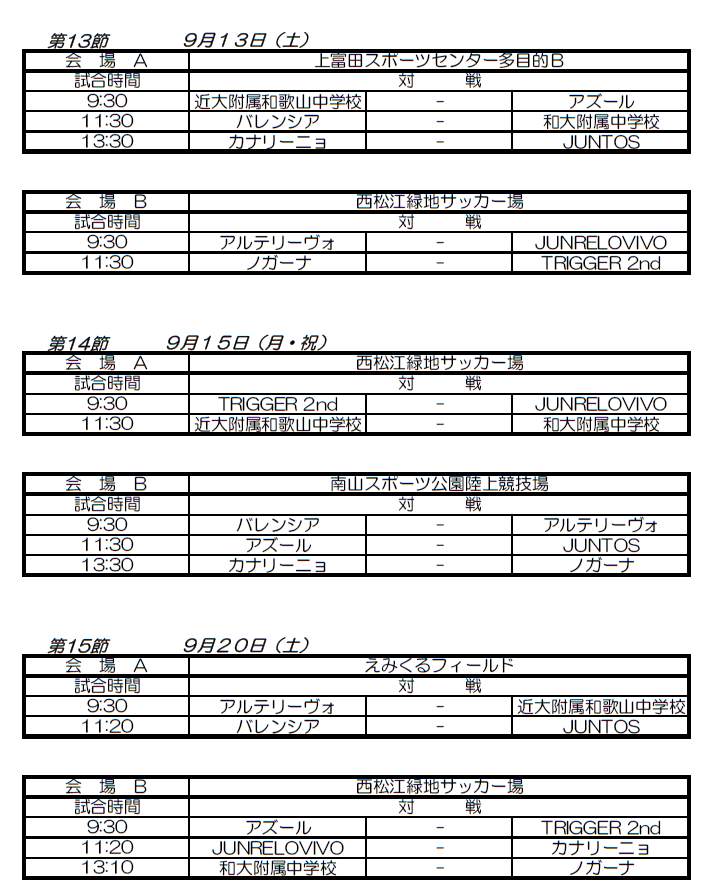 第13節 9月13日（土）
会 場 A 上富田スポーツセンター多目的B
試合時間 対 戦
9:30 近大附属和歌山中学校 - アズール
11:30 バレンシア - 和大附属中学校
13:30 カナリーニョ - JUNTOS
会 場 B 西松江緑地サッカー場
試合時間 対 戦
9:30 アルテリーヴォ - JUNRELOVIVO
11:30 ノガーナ - TRIGGER 2nd
第14節 9月15日（月・祝）
会 場 A 西松江緑地サッカー場
試合時間 対 戦
9:30 TRIGGER 2nd - JUNRELOVIVO
11:30 近大附属和歌山中学校 - 和大附属中学校
会 場 B 南山スポーツ公園陸上競技場
試合時間 対 戦
9:30 バレンシア - アルテリーヴォ
11:30 アズール - JUNTOS
13:30 カナリーニョ - ノガーナ
第15節 9月20日（土）
会 場 A えみくるフィールド
試合時間 対 戦
9:30 アルテリーヴォ - 近大附属和歌山中学校
11:20 バレンシア - JUNTOS
会 場 B 西松江緑地サッカー場
試合時間 対 戦
9:30 アズール - TRIGGER 2nd
11:20 JUNRELOVIVO - カナリーニョ
13:10 和大附属中学校 - ノガーナ